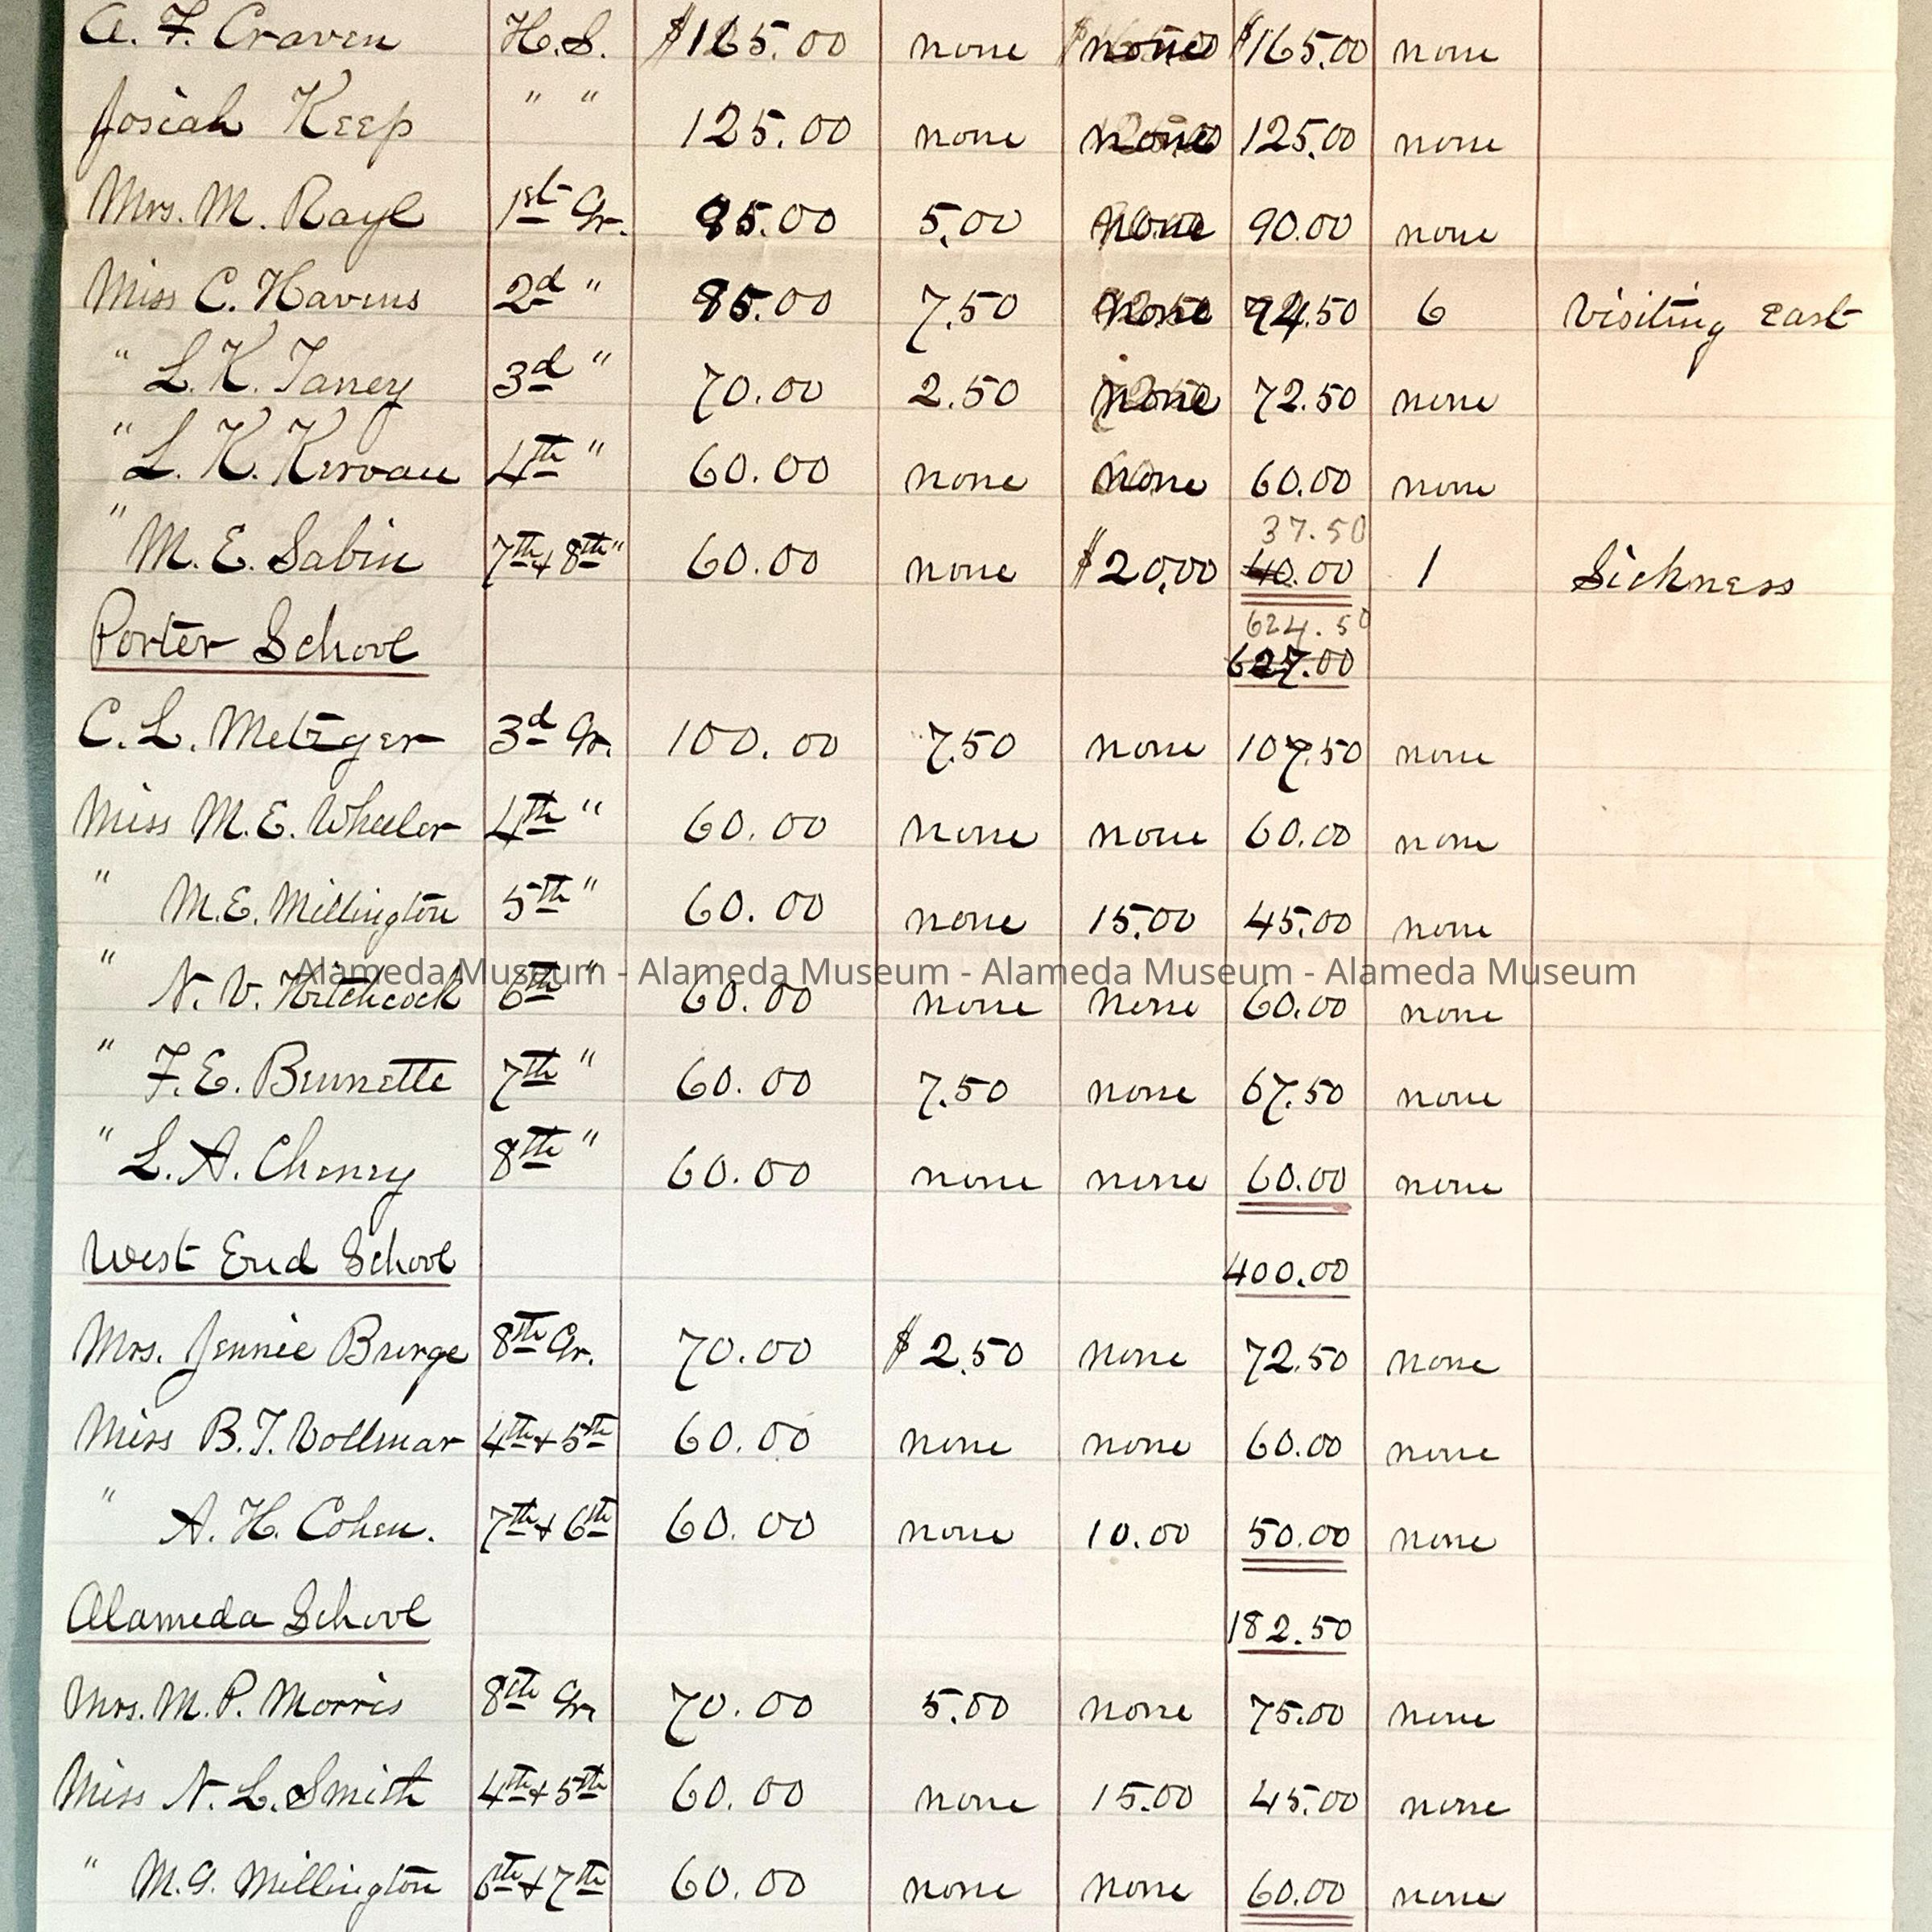 A. F. Craven H.S. $165.00 none none $165.00 none
Josiah Keep " " 125.00 none none 125.00 none
Mrs. M. Rayl 1st Gr. 85.00 5.00 none 90.00 none
Miss C. Havens 2d " 85.00 7.50 none 74.50 6 Visiting East
" L. K. Taney 3d " 70.00 2.50 none 72.50 none
" L. K. Kervan 4th " 60.00 none none 60.00 none
37.50
" M. E. Sabin 7th + 8th " 60.00 none $20.00 40.00 1 Sickness
624.50
Porter School 627.00
C. L. Metzger 3d Gr. 100.00 7.50 none 107.50 none
Miss M. E. Wheeler 4th " 60.00 none none 60.00 none
" M. E. Millington 5th " 60.00 none 15.00 45.00 none
Alameda Museum - Alameda Museum - Alameda Museum - Alameda Museum
" N. V. Hitchcock 6th " 60.00 none none 60.00 none
" F. E. Brunette 7th " 60.00 7.50 none 67.50 none
" L. A. Cheney 8th " 60.00 none none 60.00 none
West End School 400.00
Mrs. Jennie Burge 8th Gr. 70.00 $2.50 none 72.50 none
Miss B. T. Vollmar 4th + 5th 60.00 none none 60.00 none
" A. H. Cohen. 7th + 6th 60.00 none 10.00 50.00 none
Alameda School 182.50
Mrs. M. P. Morris 8th Gr. 70.00 5.00 none 75.00 none
Miss N. L. Smith 4th + 5th 60.00 none 15.00 45.00 none
" M. G. Millington 6th + 7th 60.00 none none 60.00 none